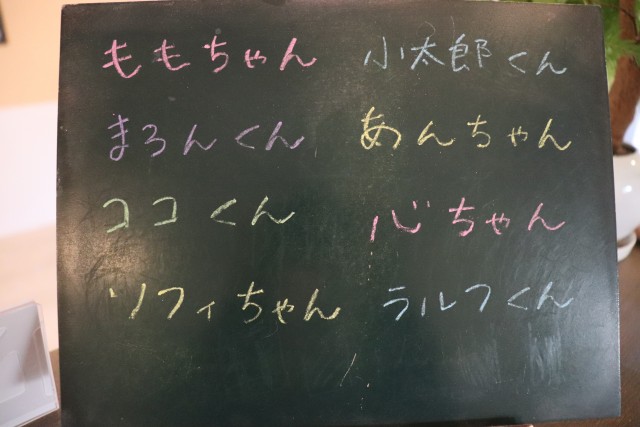 ももちゃん 小太郎くん
まろんくん あんちゃん
ココくん 心ちゃん
ソフィちゃん ラルフくん